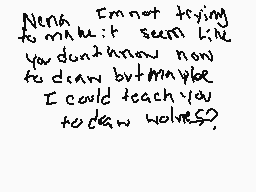 Nena I'm not trying
to make it seem like
you don't know how
to draw but maybe
I could teach you
to draw wolves?